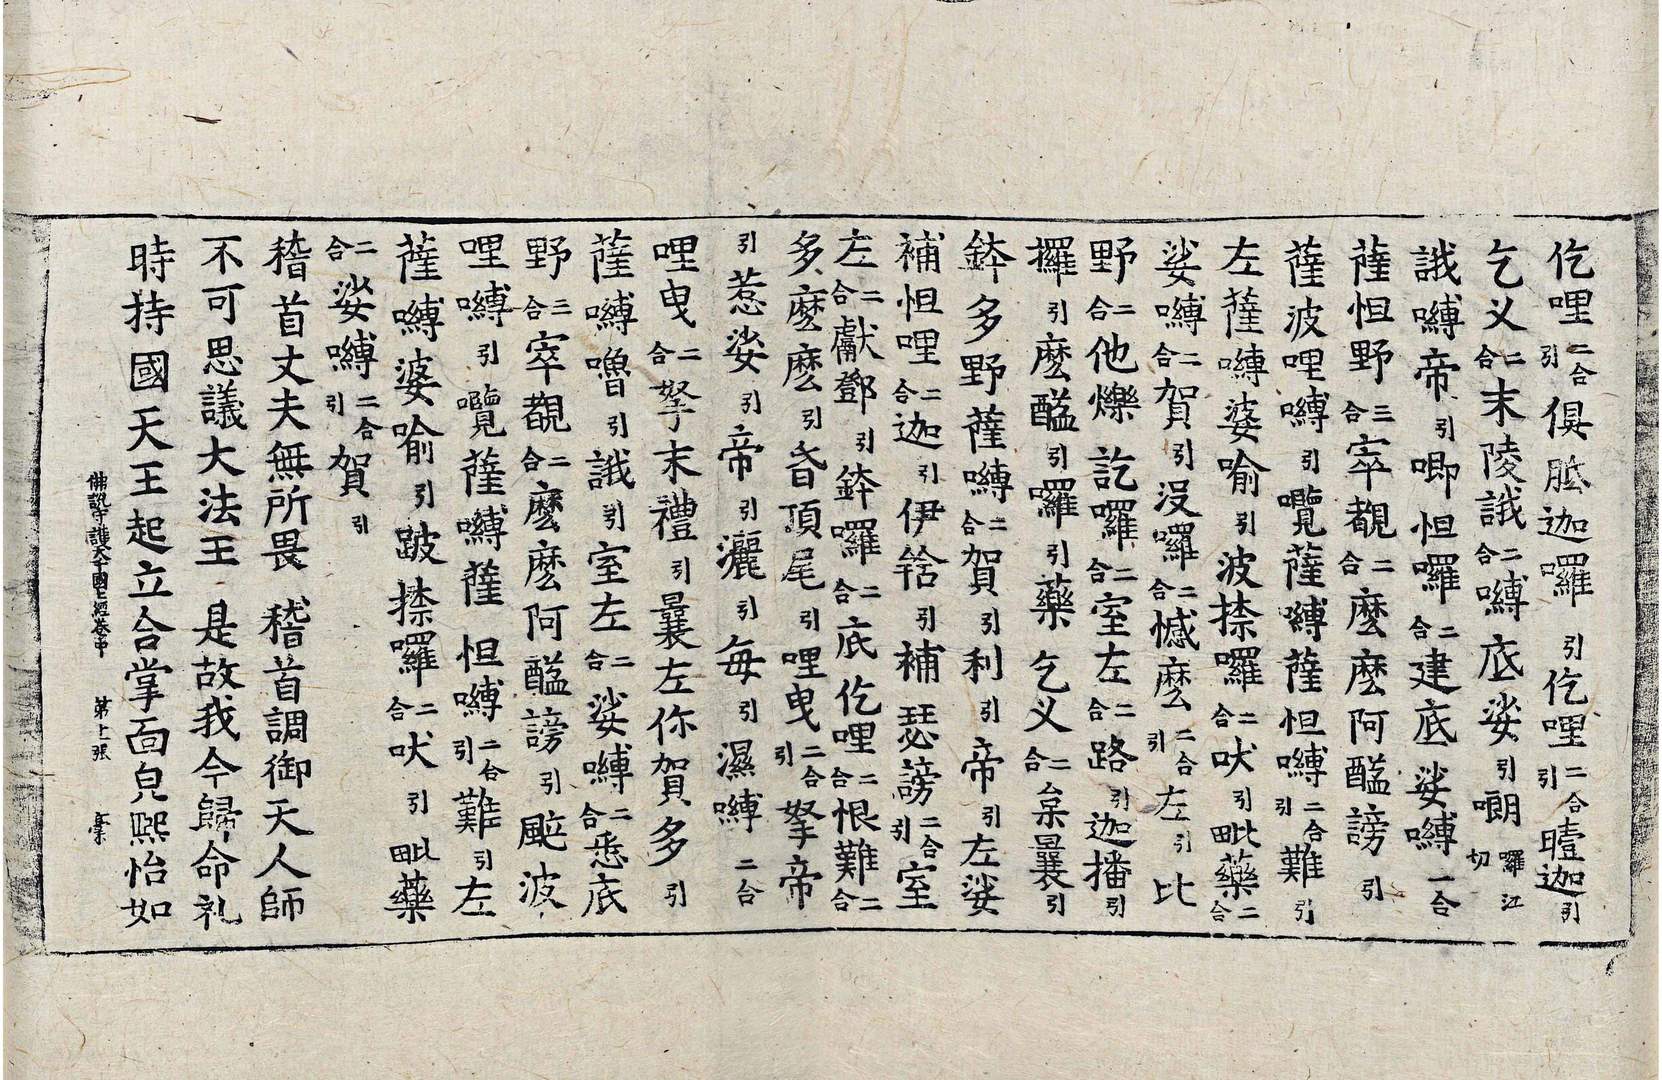 仡哩二合引俱胝迦囉引仡哩二合引曀迦引
乞义二合末陵誐二合嚩底娑引嘲囉江切
誐嚩帝引唧怛囉二合建底娑嚩二合
薩怛野三合窣覩二合麼麼阿醯謗引
薩波哩嚩引嚂薩嚩薩怛嚩二合引難引
左薩嚩婆喻引波捺囉二合吠引毗藥二合
娑嚩二合賀引沒囉二合憾麼二合引左引比
野二合他爍訖囉二合室左二合路引迦播引
攞引麼醯引囉引藥乞义二合枲曩引
鉢多野薩嚩二合賀引利引帝引左娑
補怛哩二合迦引伊舍引補瑟謗二合引室
左二合獻鄧引鉢囉二合底仡哩二合恨難二合
多麼麼引昏頂尾引哩曳二合引拏帝
引惹娑引帝引灑引每引濕嚩二合
哩曳二合拏末禮引曩左你賀多引
薩嚩嚕引誐引室左二合娑嚩二合悉底
野三合窣覩二合麼麼阿醯謗引颰波
哩嚩引嚂薩嚩薩怛嚩二合引難引左
薩嚩婆喻引跛捺囉二合吠引毗藥
二合娑嚩二合引賀引
稽首丈夫無所畏 稽首調御天人師
不可思議大法王 是故我今歸命礼
時持國天王起立合掌面皃熙怡如
佛說守護大千國土經卷中 第十張